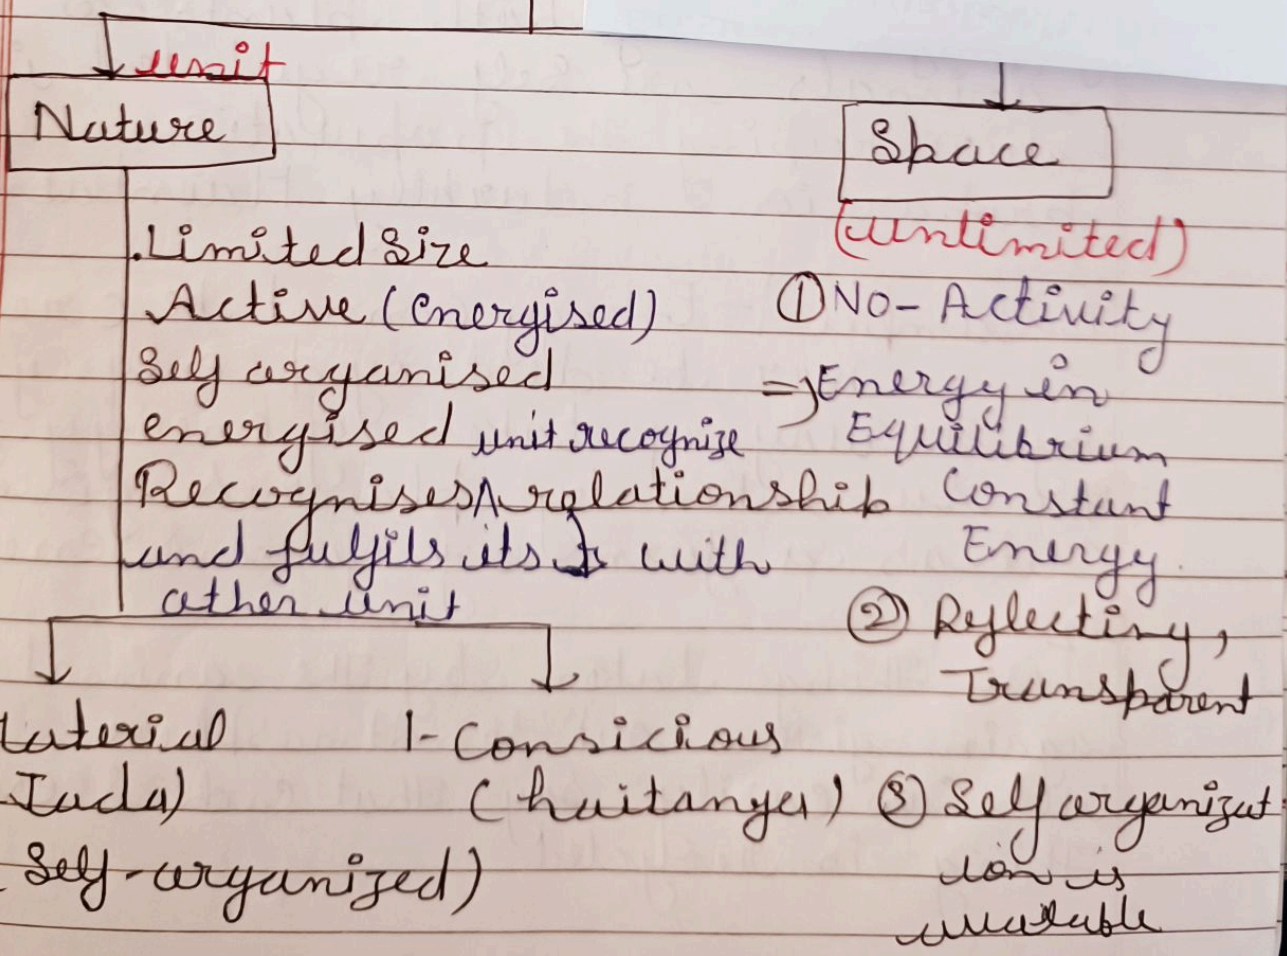 unit
Nature
.Limited Size
Active (energised)
Self organised
energised unit recognize
Recognises relationship
and fulfils its with
other unit
Material
Jada)
Self-organized)
1- Consicious
(haitanya)
Space
(unlimited)
① No- Activity
=> Energy in
Equilibrium
Constant
Energy
② Reflecting,
Transparent
③ Self organizat
ion is
available